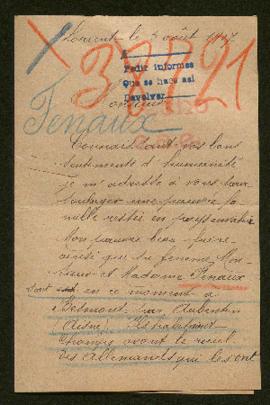 Lorient le 3 août 1917
A
Pedir informes
Que se haga así
Devolver
37721
Tenaux
Monsieur
Connaissant vos bons
sentiments d'humanité
je m'adresse à vous pour
soulager une pauvre fa
mille restée en pays envahie
Mon pauvre beau-frère
ainsi que sa femme Mon
sieur et Madame Penaux
sont en ce moment à
Belmont par Aubenton
(Aisne)
avant le recul
des Allemands qui les ont